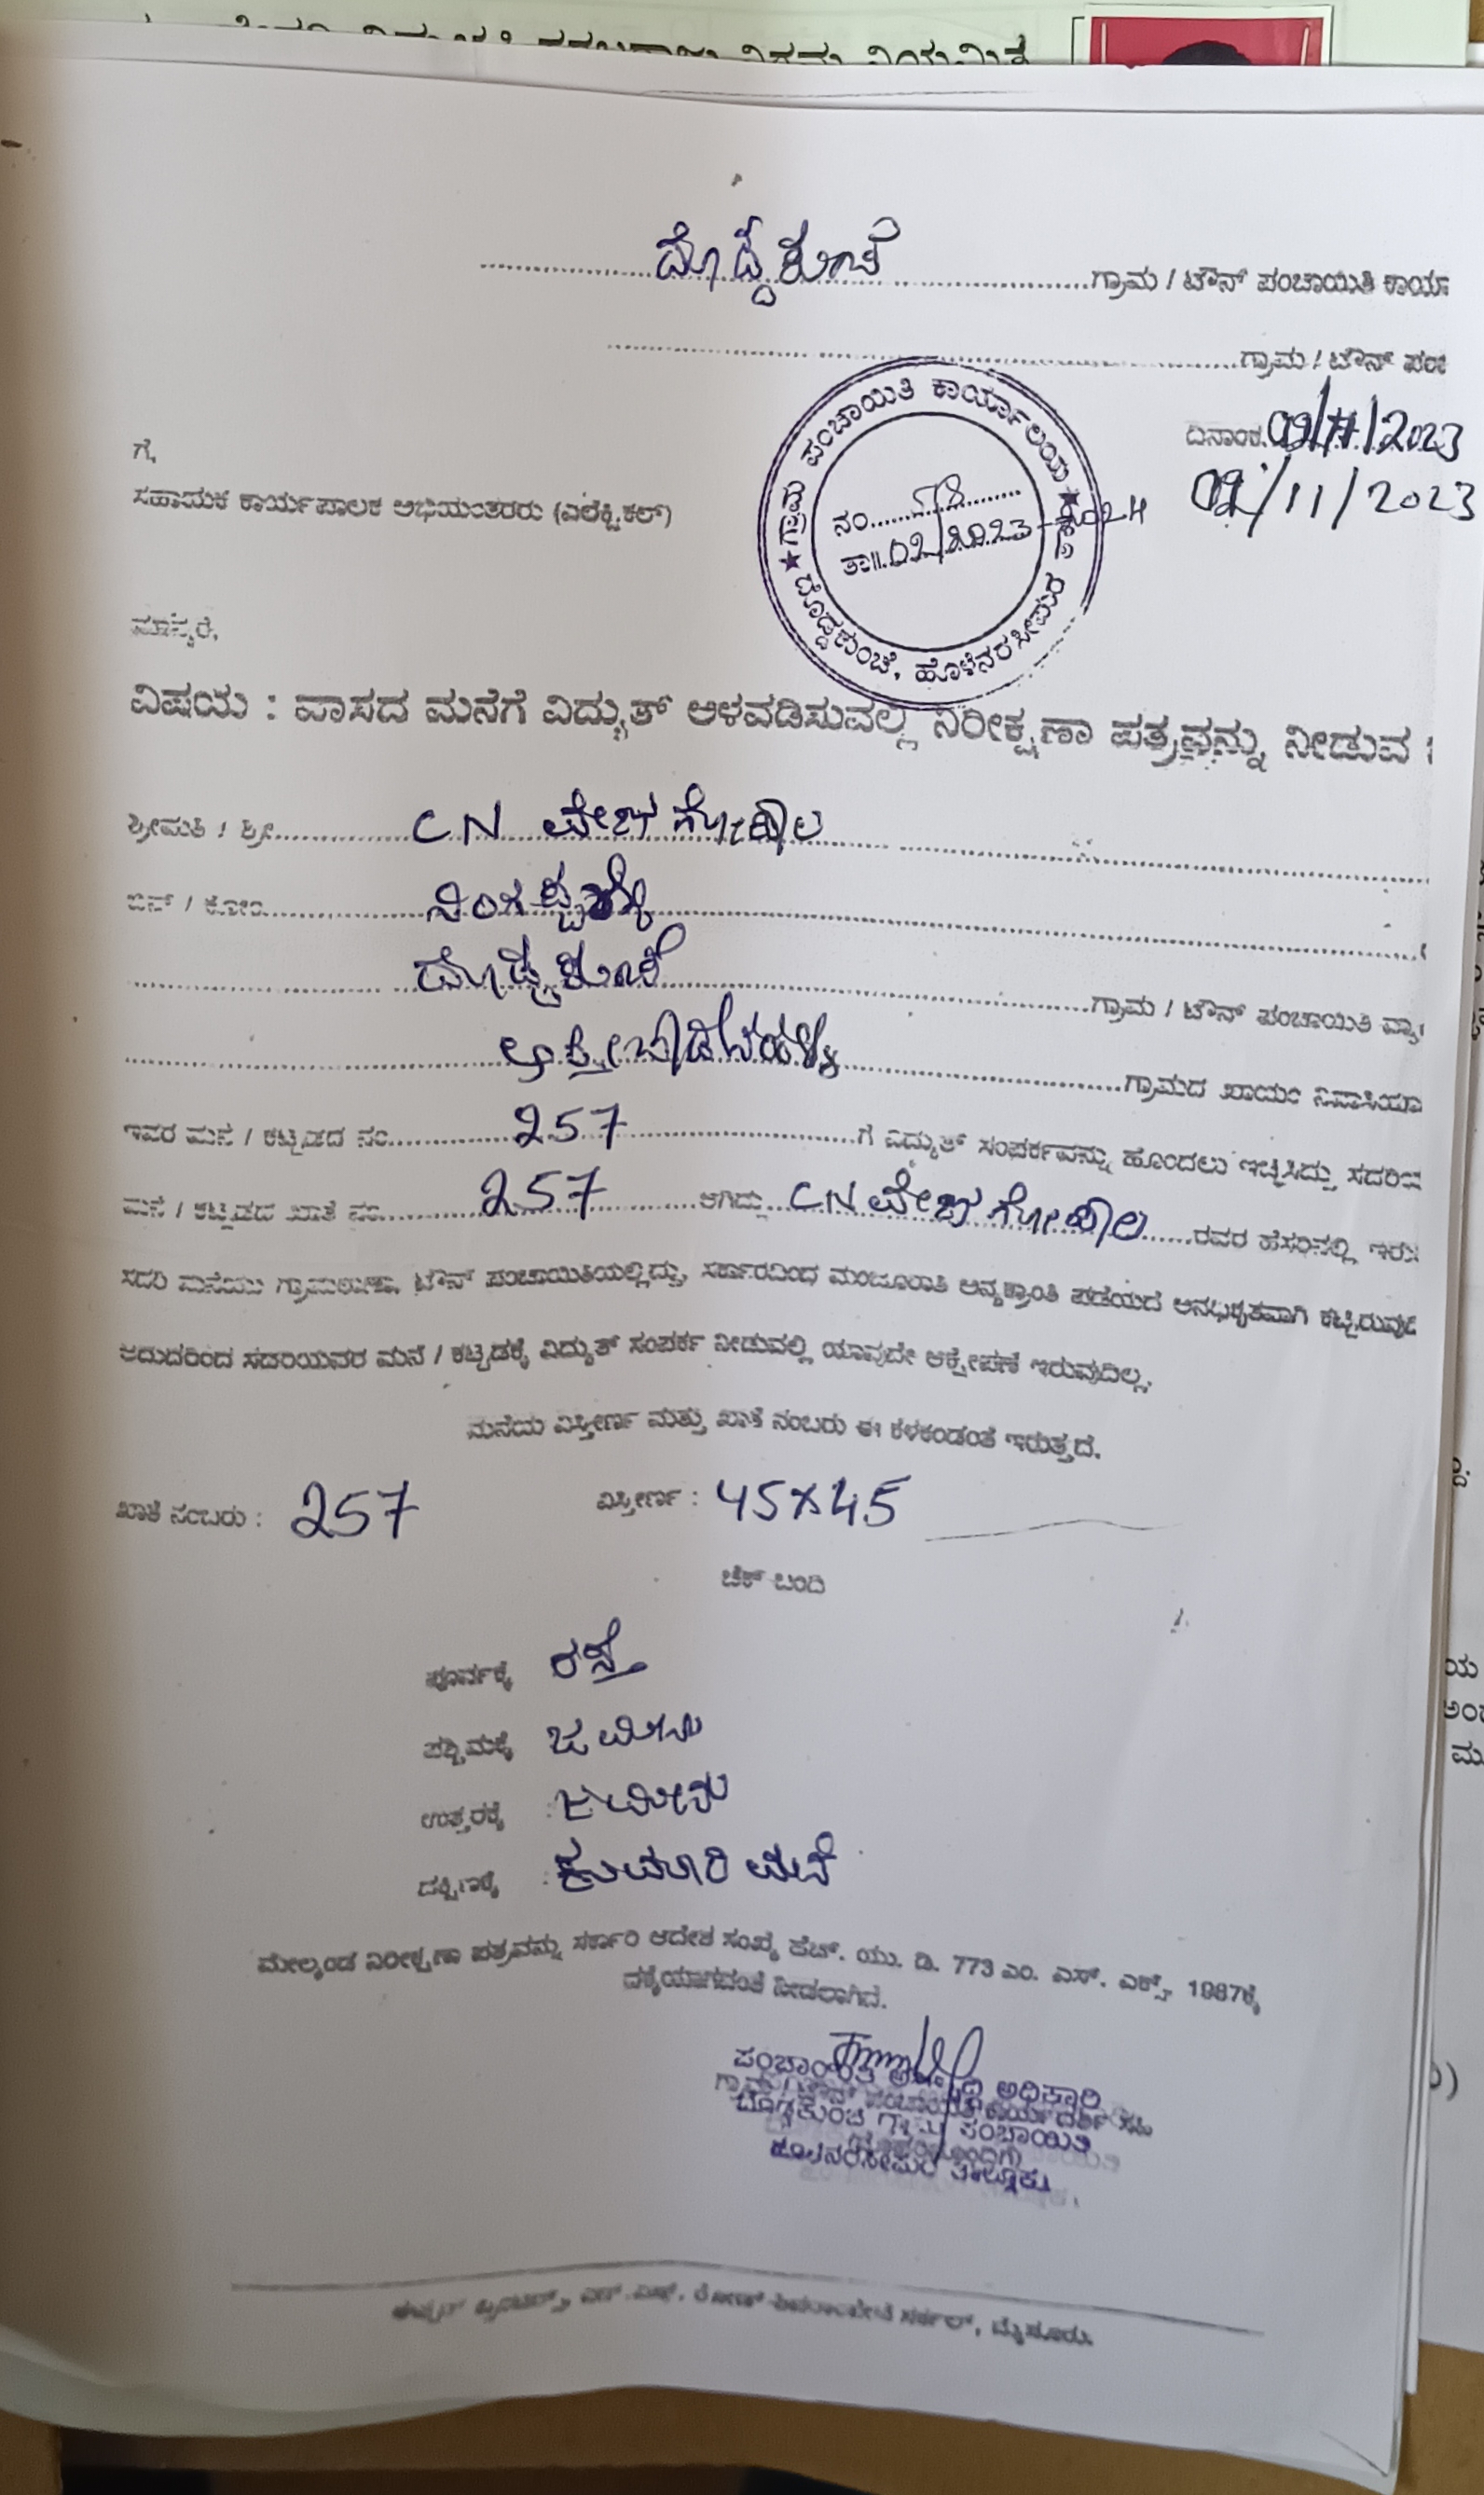 ದೊಡ್ಡಕುಂಚೆ ಗ್ರಾಮ / ಟೌನ್ ಪಂಚಾಯಿತಿ ಕಾರ್ಯಾ
ಗ್ರಾಮ / ಟೌನ್ ಪಂಚಾ
ದಿನಾಂಕ. 02/11/2023
02/11/2023
ಗ್ರಾಮ ಪಂಚಾಯಿತಿ ಕಾರ್ಯಾಲಯ
ನಂ. 58
ತಾ॥. 02/2023-2024
ದೊಡ್ಡಕುಂಚೆ, ಹೊಳೆನರಸೀಪುರ
ಗೆ,
ಸಹಾಯಕ ಕಾರ್ಯಪಾಲಕ ಅಭಿಯಂತರರು (ಎಲೆಕ್ಟ್ರಿಕಲ್)
ಮಾನ್ಯರೆ,
ವಿಷಯ : ವಾಸದ ಮನೆಗೆ ವಿದ್ಯುತ್ ಅಳವಡಿಸುವಲ್ಲಿ ನಿರೀಕ್ಷಣಾ ಪತ್ರವನ್ನು ನೀಡುವ
ಶ್ರೀಮತಿ / ಶ್ರೀ. CN ವೇಣುಗೋಪಾಲ
ಬಿನ್ / ಕೋಂ
ದೊಡ್ಡಕುಂಚೆ ಗ್ರಾಮ / ಟೌನ್ ಪಂಚಾಯಿತಿ ವ್ಯಾ
ಗ್ರಾಮದ ಖಾಯಂ ನಿವಾಸಿಯಾ
ಇವರ ಮನೆ / ಕಟ್ಟಡದ ನಂ. 257 ಗೆ ವಿದ್ಯುತ್ ಸಂಪರ್ಕವನ್ನು ಹೊಂದಲು ಇಚ್ಛಿಸಿದ್ದು ಸದರಿಯ
ಮನೆ / ಕಟ್ಟಡದ ಖಾತೆ ನಂ. 257 ಆಗಿದ್ದು CN ವೇಣುಗೋಪಾಲ ರವರ ಹೆಸರಿನಲ್ಲಿ ಇರು
ಸದರಿ ಮನೆಯು ಟೌನ್ ಪಂಚಾಯಿತಿಯಲ್ಲಿದ್ದು, ಸರ್ಕಾರದಿಂದ ಮಂಜೂರಾತಿ ಅನ್ಯಕ್ರಾಂತಿ ಪಡೆಯದೆ ಅನಧಿಕೃತವಾಗಿ ಕಟ್ಟಿರುವುದ
ಆದುದರಿಂದ ಸದರಿಯವರ ಮನೆ / ಕಟ್ಟಡಕ್ಕೆ ವಿದ್ಯುತ್ ಸಂಪರ್ಕ ನೀಡುವಲ್ಲಿ ಯಾವುದೇ ಆಕ್ಷೇಪಣೆ ಇರುವುದಿಲ್ಲ.
ಮನೆಯ ವಿಸ್ತೀರ್ಣ ಮತ್ತು ಖಾತೆ ನಂಬರು ಈ ಕೆಳಕಂಡಂತೆ ಇರುತ್ತದೆ.
ಖಾತೆ ನಂಬರು : 257 ವಿಸ್ತೀರ್ಣ : 45×45
ಚೆಕ್ ಬಂದಿ
ಪೂರ್ವಕ್ಕೆ ರಸ್ತೆ
ಪಶ್ಚಿಮಕ್ಕೆ ಜಮೀನು
ಉತ್ತರಕ್ಕೆ : ಜಮೀನು
ದಕ್ಷಿಣಕ್ಕೆ : ಕುಮಾರಿ ಮನೆ
ಮೇಲ್ಕಂಡ ನಿರೀಕ್ಷಣಾ ಪತ್ರವನ್ನು ಸರ್ಕಾರಿ ಆದೇಶ ಸಂಖ್ಯೆ ಹೆಚ್. ಯು. ಡಿ. 773 ಎಂ. ಎಸ್. ಎಕ್ಸ್. 1987ಕ್ಕೆ
ನೀಡಲಾಗಿದೆ.
ಪಂಚಾಯಿತಿ ಅಭಿವೃದ್ಧಿ ಅಧಿಕಾರಿ
ದೊಡ್ಡಕುಂಚೆ ಗ್ರಾಮ ಪಂಚಾಯಿತಿ
ಹೊಳೆನರಸೀಪುರ ತಾಲ್ಲೂಕು.
ಸರ್ಕಲ್, ಮೈಸೂರು.